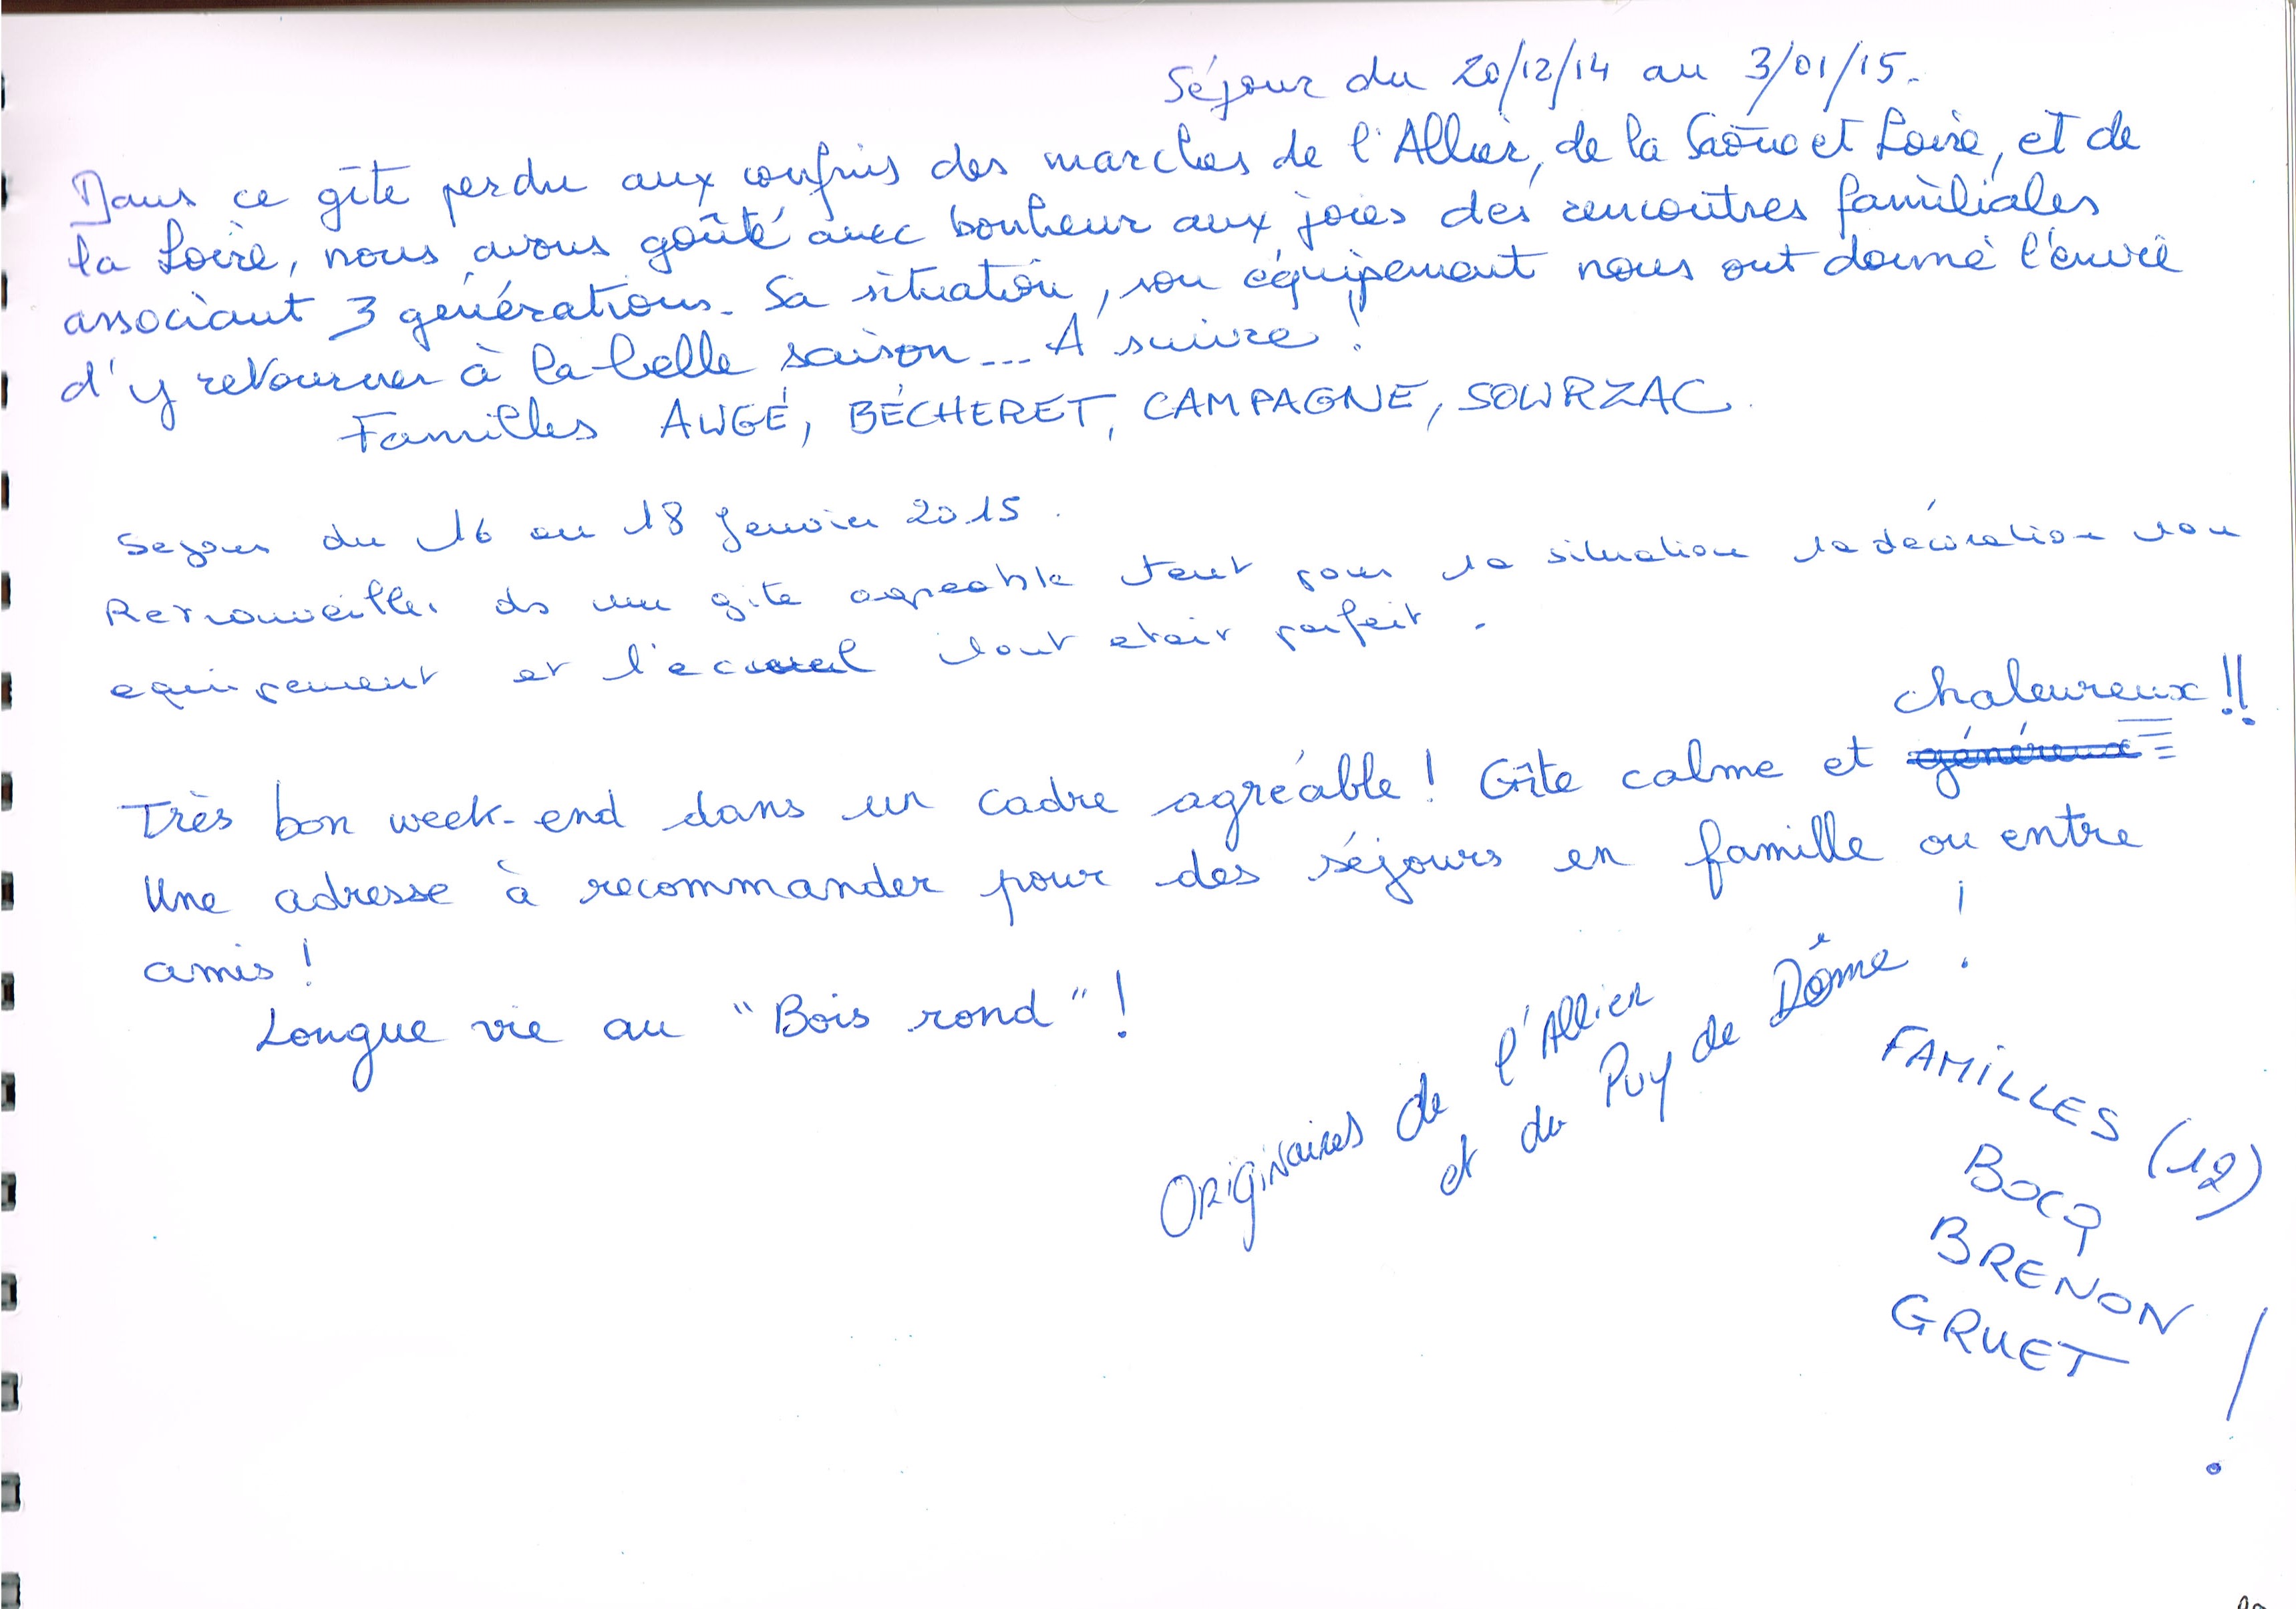 Séjour du 20/12/14 au 3/01/15.
Dans ce gîte perdu aux confins des marches de l'Allier, de la Saône et Loire, et de
la Loire, nous avons goûté avec bonheur aux joies des rencontres familiales
associant 3 générations. Sa situation, son équipement nous ont donné l'envie
d'y retourner à la belle saison... A suivre !
Familles AUGÉ, BÉCHERET, CAMPAGNE, SOURZAC.
Sejour du 16 au 18 Janvier 2015.
ds un gite agreable tant pour la situation la décoration son
equipement et l'accueil tout etait parfait.
chaleureux !!
Très bon week-end dans un cadre agréable ! Gîte calme et généreux
Une adresse à recommander pour des séjours en famille ou entre
amis !
Longue vie au "Bois rond" !
Originaires de l'Allier
et du Puy de Dôme !
FAMILLES (12)
BOCQ
BRENON
GRUET !